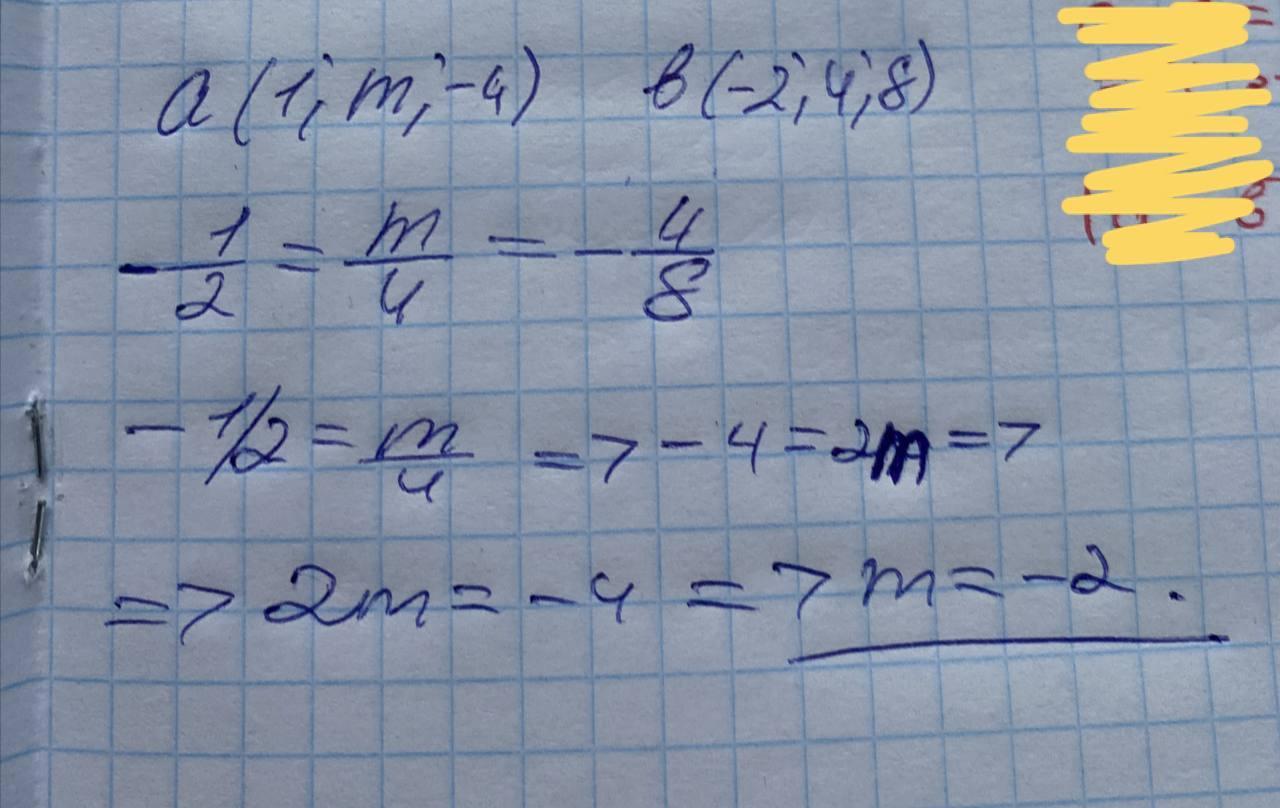 a (1; m; -4) b (-2; 4; 8)
- 1/2 = m/4 = - 4/8
- 1/2 = m/4 => - 4 = 2m =>
=> 2m = -4 => m = -2.